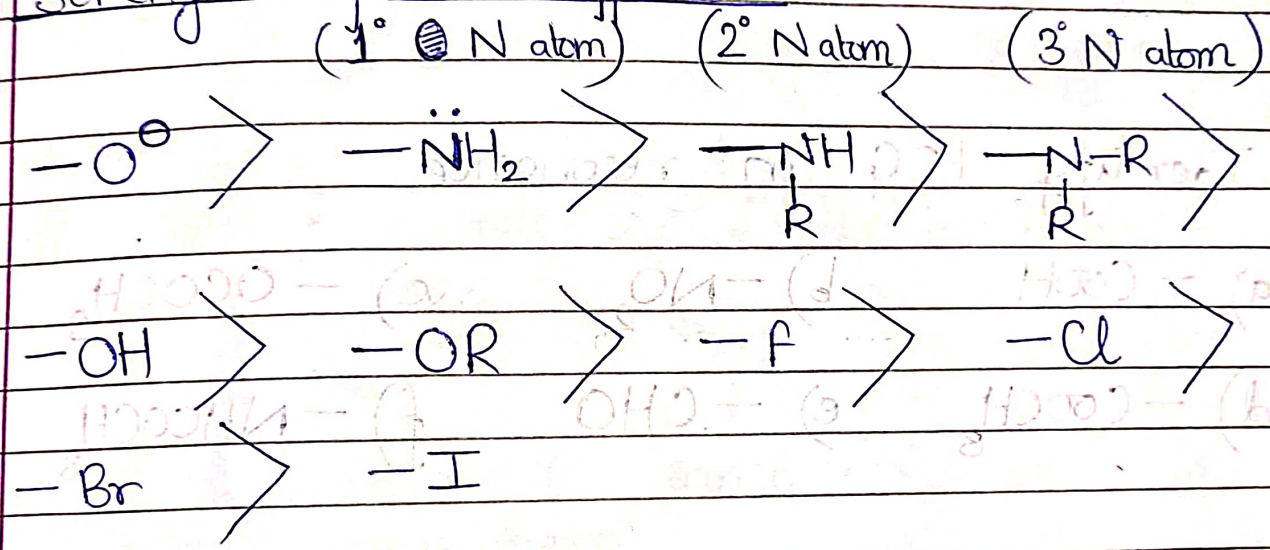 (1° N atom) (2° N atom) (3° N atom)
—O⊖ > —N̈H₂ > —NH > —N—R >
R R
—OH > —OR > —F > —Cl >
—Br > —I